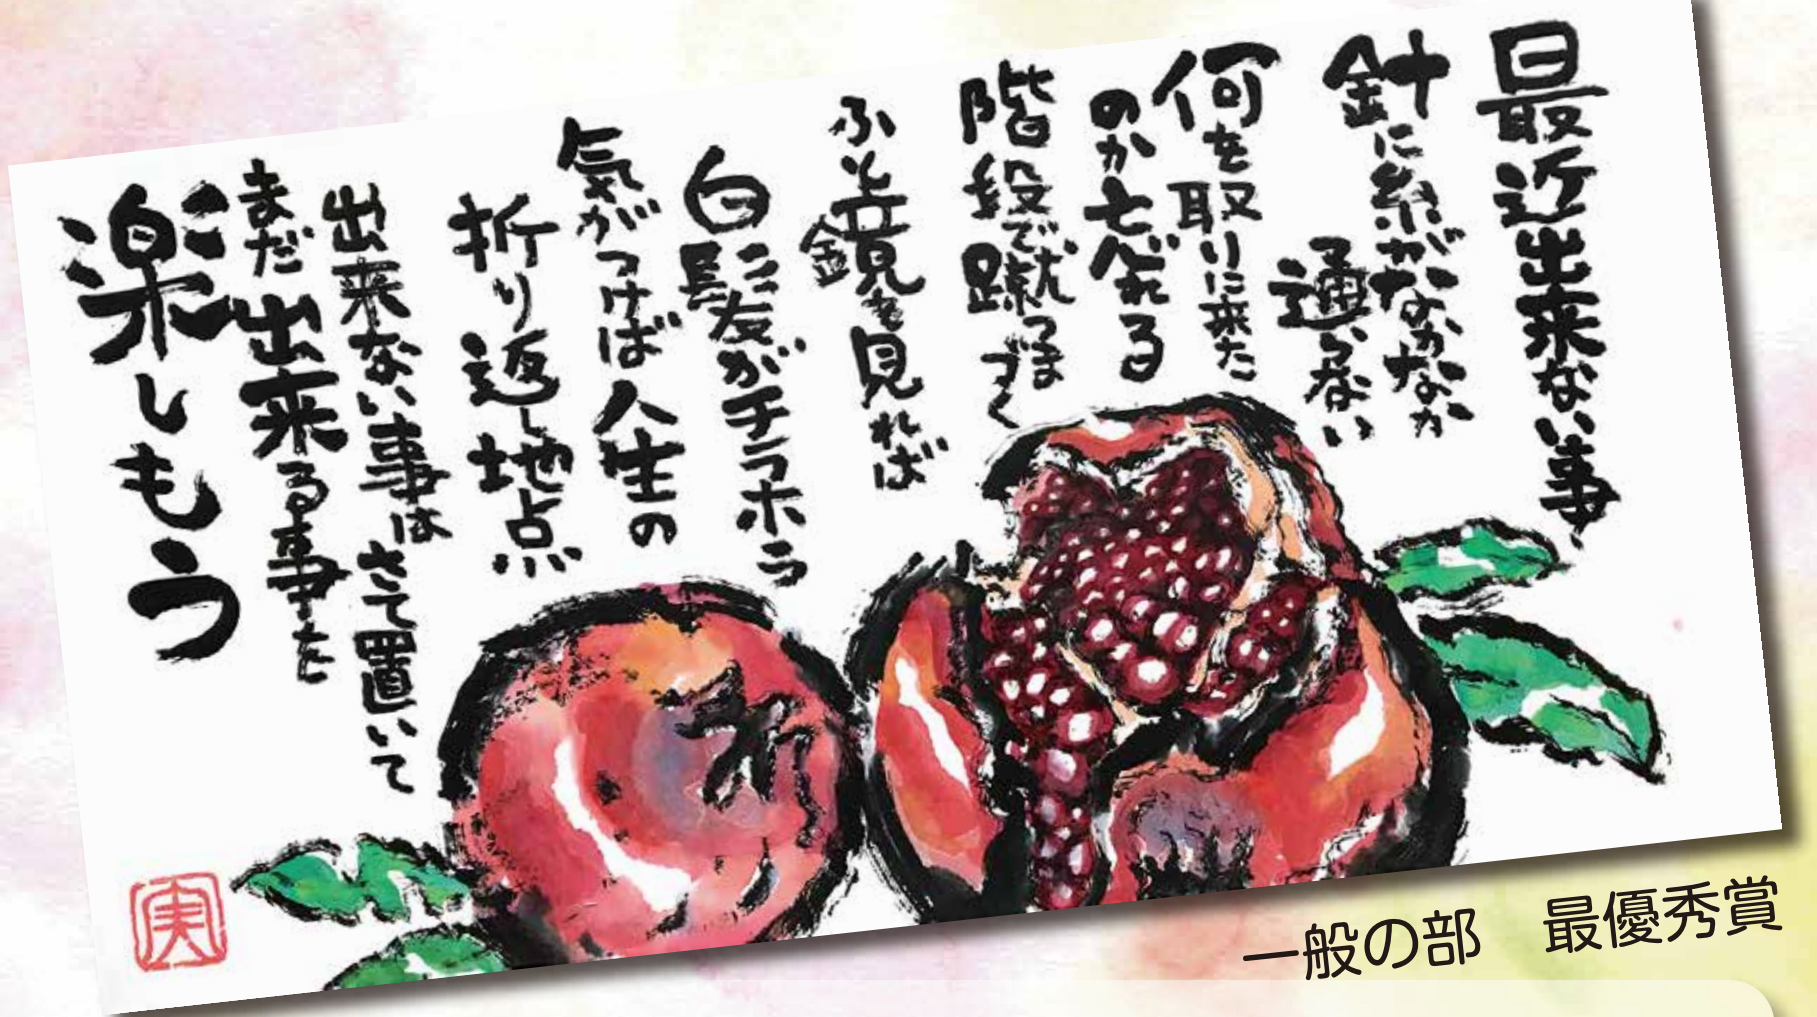 最近出来ない事
針に糸がなかなか
通らない
何を取りに来た
のか忘れる
階段で蹴つま
づく
ふと鏡を見れば
白髪がチラホラ
気がつけば人生の
折り返し地点
出来ない事はさて置いて
まだ出来る事を
楽しもう
実
一般の部　最優秀賞